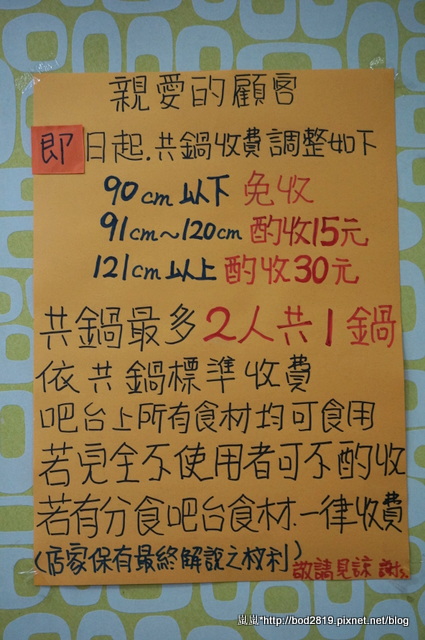 親愛的顧客
即日起.共鍋收費調整如下
90cm以下 免收
91cm~120cm 酌收15元
121cm以上 酌收30元
共鍋最多2人共1鍋
依共鍋標準收費
吧台上所有食材均可食用
若完全不使用者可不酌收
若有分食吧台食材.一律收費
(店家保有最終解說之权利)
敬請見諒 謝謝
嵐嵐*http://bod2819.pixnet.net/blog